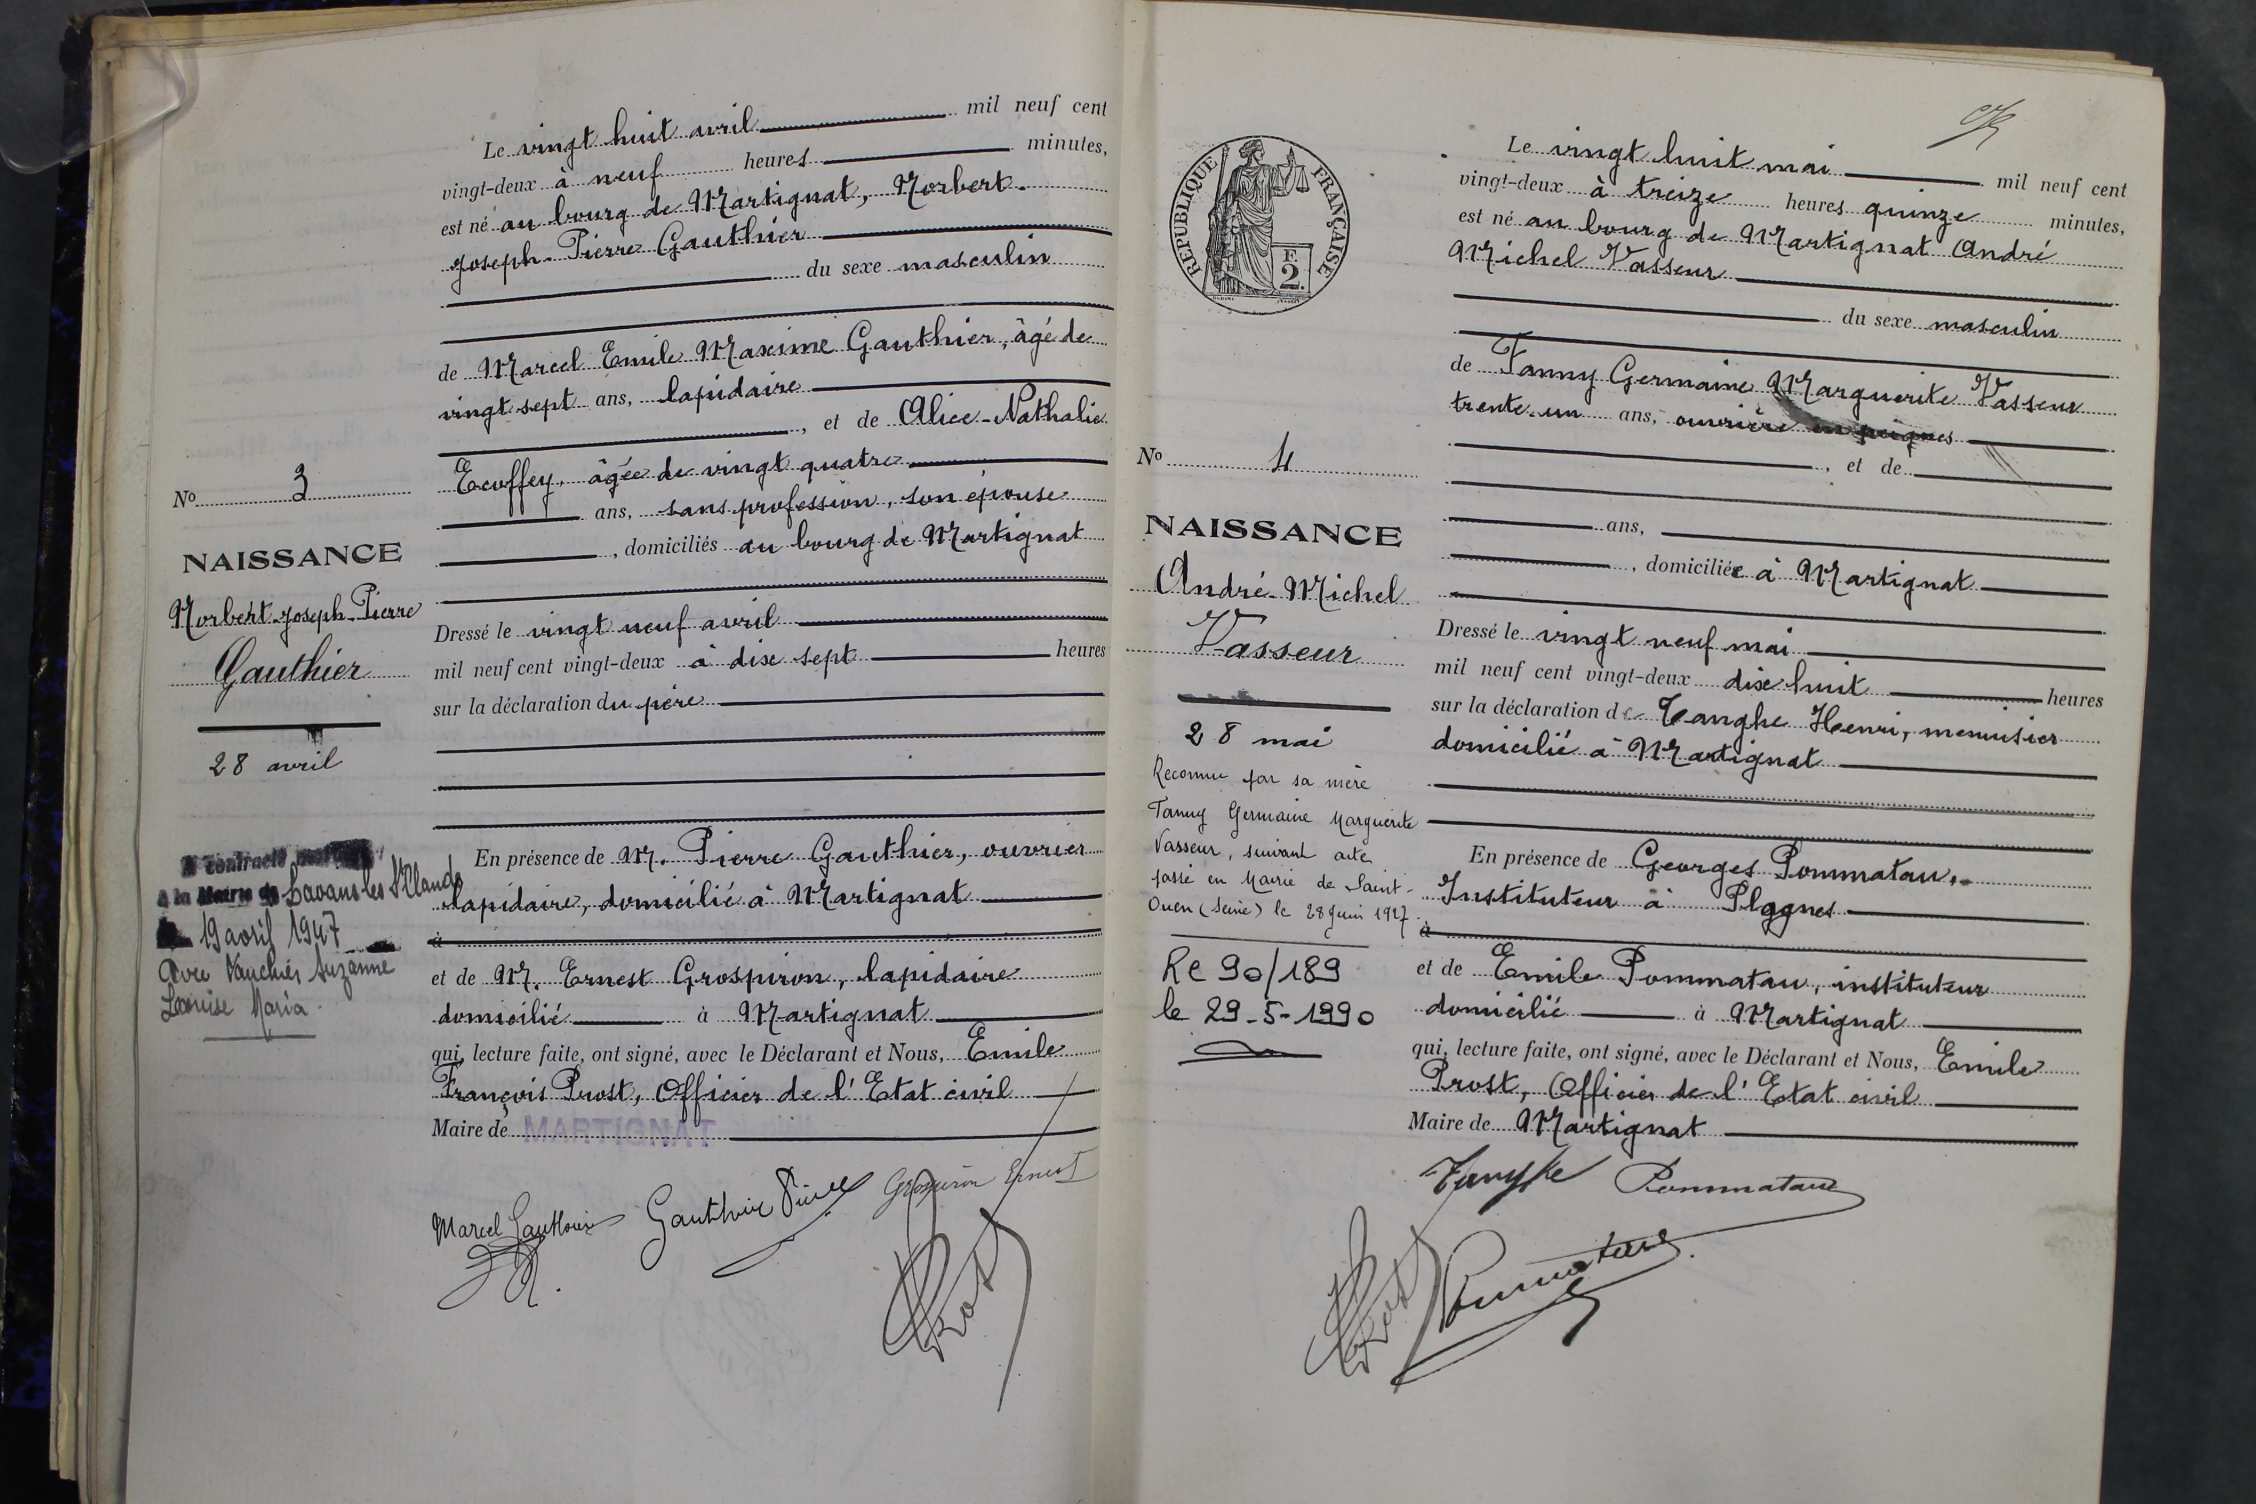 Le vingt huit avril mil neuf cent
vingt-deux à neuf heures minutes,
est né au bourg de Martignat, Norbert-
Joseph-Pierre Gauthier
du sexe masculin
de Marcel Emile Maxime Gauthier, âgé de
vingt sept ans, lapidaire
, et de Alice-Nathalie
Ecoffey, âgée de vingt quatre
ans, sans profession, son épouse
, domiciliés au bourg de Martignat
Dressé le vingt neuf avril
mil neuf cent vingt-deux à dix sept heures
sur la déclaration du père
En présence de M. Pierre Gauthier, ouvrier
lapidaire, domicilié à Martignat
à
et de M. Ernest Grospiron, lapidaire
domicilié à Martignat
qui, lecture faite, ont signé, avec le Déclarant et Nous, Emile
François Prost, Officier de l'Etat civil
Maire de MARTIGNAT
Marcel Gauthier Gauthier Pierre Grospiron Ernest
Prost
No 3
NAISSANCE
Norbert-Joseph-Pierre
Gauthier
28 avril
A contracté
à la Mairie de Lavans les St Claude
19 avril 1947
Avec Vauchier Suzanne
Louise Maria.
RÉPUBLIQUE FRANÇAISE
F.
2.
Le vingt huit mai mil neuf cent
vingt-deux à treize heures quinze minutes,
est né au bourg de Martignat André
Michel Vasseur
du sexe masculin
de Fanny Germaine Marguerite Vasseur
trente-un ans, ouvrière en peignes
, et de
ans,
, domiciliée à Martignat
Dressé le vingt neuf mai
mil neuf cent vingt-deux dix huit heures
sur la déclaration de Tanghe Henri, menuisier
domicilié à Martignat
En présence de Georges Pommatau,
Instituteur à Plagnes
à
et de Emile Pommatau, instituteur
domicilié à Martignat
qui, lecture faite, ont signé, avec le Déclarant et Nous, Emile
Prost, Officier de l'Etat civil
Maire de Martignat
Tanghe Pommatau
Prost Pommatau
No 4
NAISSANCE
André-Michel
Vasseur
28 mai
Reconnu par sa mère
Fanny Germaine Marguerite
Vasseur, suivant acte
passé en Mairie de Saint-
Ouen (Seine) le 28 Juin 1927.
Re 90/189
le 29-5-1990